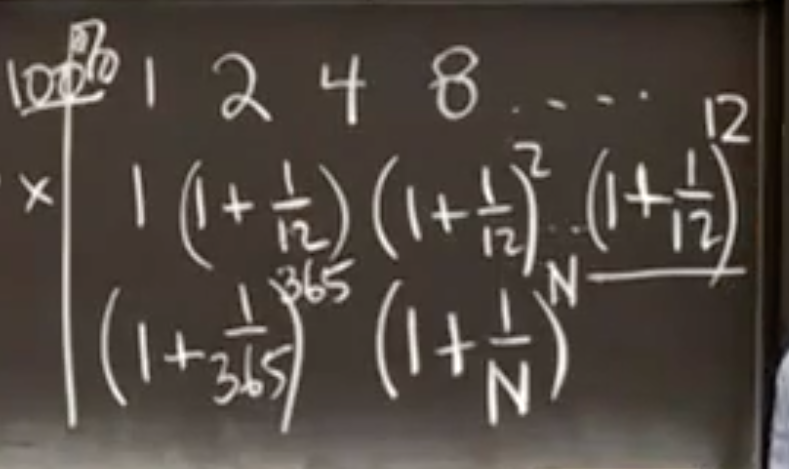 100% 1 2 4 8 ....
x 1 (1 + 1/12) (1 + 1/12)^2 .. (1 + 1/12)^12
(1 + 1/365)^365 (1 + 1/N)^N